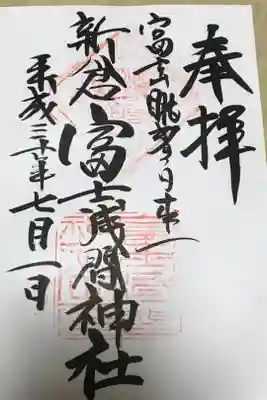 奉拝
富士山眺望日本一
新倉富士浅間神社
平成三十年七月一日